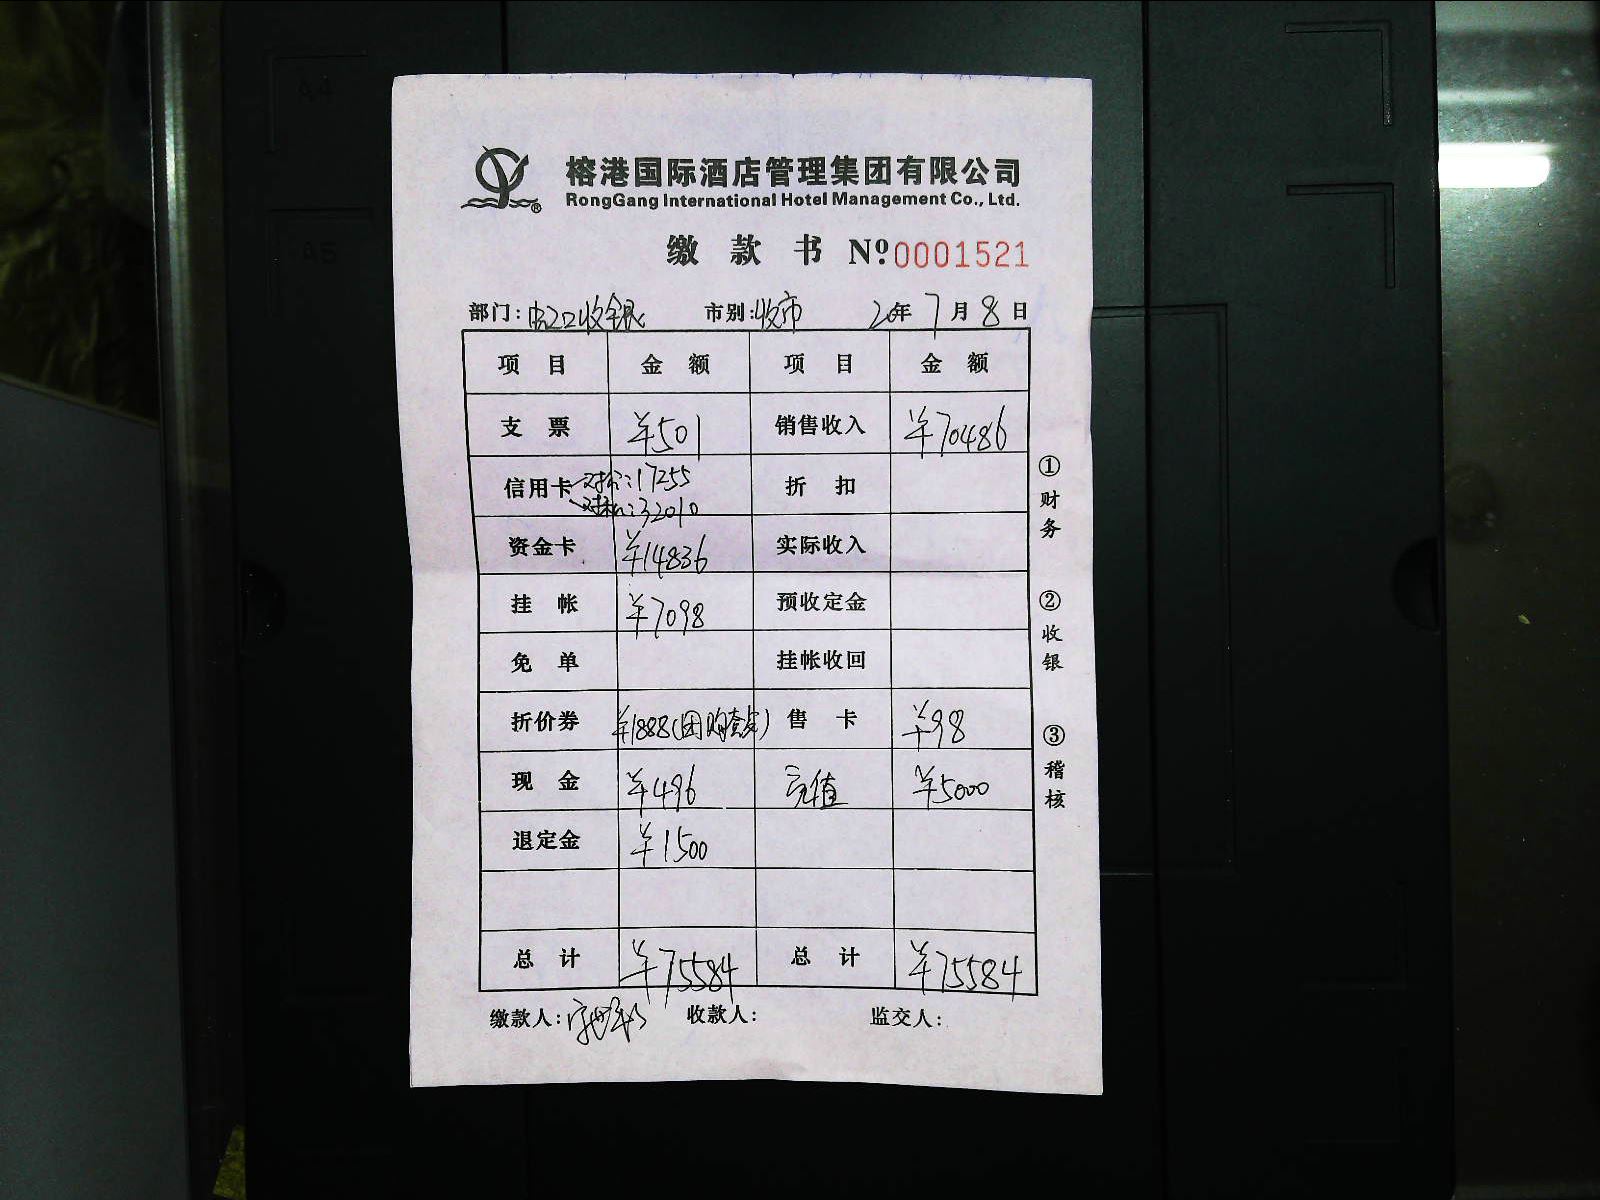 榕港国际酒店管理集团有限公司
RongGang International Hotel Management Co., Ltd.
缴 款 书 Nº.0001521
部门: 收银 市别:收市 20年 7月 8日
项 目 金 额 项 目 金 额
支 票 ¥501 销售收入 ¥70486
信用卡 :17255 折 扣
:32010
资金卡 ¥14836 实际收入
挂 帐 ¥7098 预收定金
免 单 挂帐收回
折价券 ¥1888(团购套) 售 卡 ¥98
现 金 ¥496 充值 ¥5000
退定金 ¥1500
总 计 ¥75584 总 计 ¥75584
缴款人: 收款人: 监交人:
①财务
②收银
③稽核
A4
A5